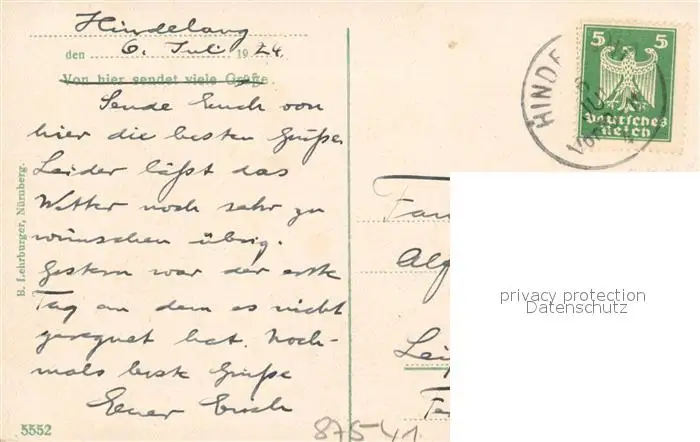 Hindelang
den 6. Juli 1924.
Von hier sendet viele Grüße.
Sende Euch von
hier die besten Grüße
Leider läßt das
Wetter noch sehr zu
wünschen übrig.
Gestern war der erste
Tag an dem es nicht
geregnet hat. Noch-
mals beste Grüße
Euer
B. Lehrburger, Nürnberg.
5552
5 5
Deutsches
Reich
HINDE
Vor
Fam
Alf
Leip
87541
privacy protection
Datenschutz